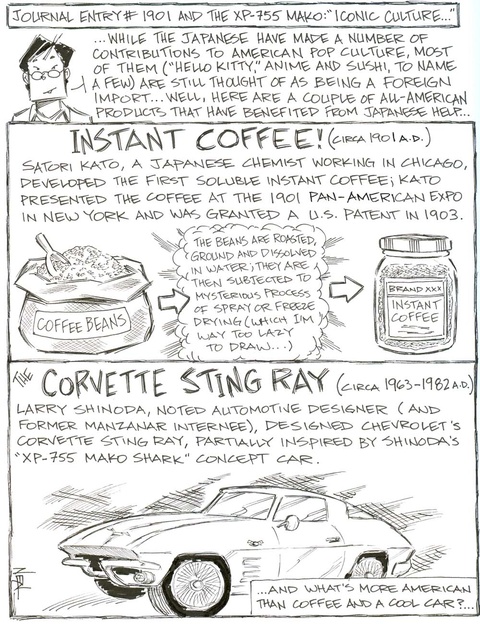 JOURNAL ENTRY# 1901 AND THE XP-755 MAKO: "ICONIC CULTURE..."
...WHILE THE JAPANESE HAVE MADE A NUMBER OF
CONTRIBUTIONS TO AMERICAN POP CULTURE, MOST
OF THEM ("HELLO KITTY," ANIME AND SUSHI, TO NAME
A FEW) ARE STILL THOUGHT OF AS BEING A FOREIGN
IMPORT... WELL, HERE ARE A COUPLE OF ALL-AMERICAN
PRODUCTS THAT HAVE BENEFITED FROM JAPANESE HELP...
INSTANT COFFEE! (CIRCA 1901 A.D.)
SATORI KATO, A JAPANESE CHEMIST WORKING IN CHICAGO,
DEVELOPED THE FIRST SOLUBLE INSTANT COFFEE; KATO
PRESENTED THE COFFEE AT THE 1901 PAN-AMERICAN EXPO
IN NEW YORK AND WAS GRANTED A U.S. PATENT IN 1903.
COFFEE BEANS
THE BEANS ARE ROASTED,
GROUND AND DISSOLVED
IN WATER; THEY ARE
THEN SUBJECTED TO
MYSTERIOUS PROCESS
OF SPRAY OR FREEZE
DRYING (WHICH I'M
WAY TOO LAZY
TO DRAW...)
BRAND XXX
INSTANT
COFFEE
THE CORVETTE STING RAY (CIRCA 1963-1982 A.D.)
LARRY SHINODA, NOTED AUTOMOTIVE DESIGNER (AND
FORMER MANZANAR INTERNEE), DESIGNED CHEVROLET'S
CORVETTE STING RAY, PARTIALLY INSPIRED BY SHINODA'S
"XP-755 MAKO SHARK" CONCEPT CAR.
...AND WHAT'S MORE AMERICAN
THAN COFFEE AND A COOL CAR?...